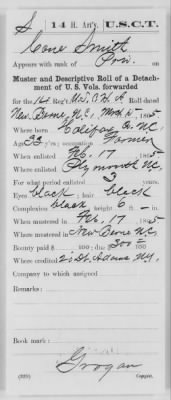 S 14 H. Art'y. U.S.C.T.
Cone Smith
Appears with rank of Priv. on
Muster and Descriptive Roll of a Detach-
ment of U. S. Vols. forwarded
for the 14 Reg't U.S. C. H. A. Roll dated
New Berne, N.C., Mch 1865
Where born Halifax Co. N.C.
Age 33 y's; occupation Farmer
When enlisted Feb. 17, 1865
Where enlisted Plymouth N.C.
For what period enlisted 3 years
Eyes black; hair black
Complexion black; height 6 ft. — in.
When mustered in Feb. 17, 1865
Where mustered in New Berne N.C.
Bounty paid $ 100; due $ 300 100
Where credited 2d Dt. Adams N.Y.
Company to which assigned
Remarks:
Book mark:
Grogan
(339) Copyist.